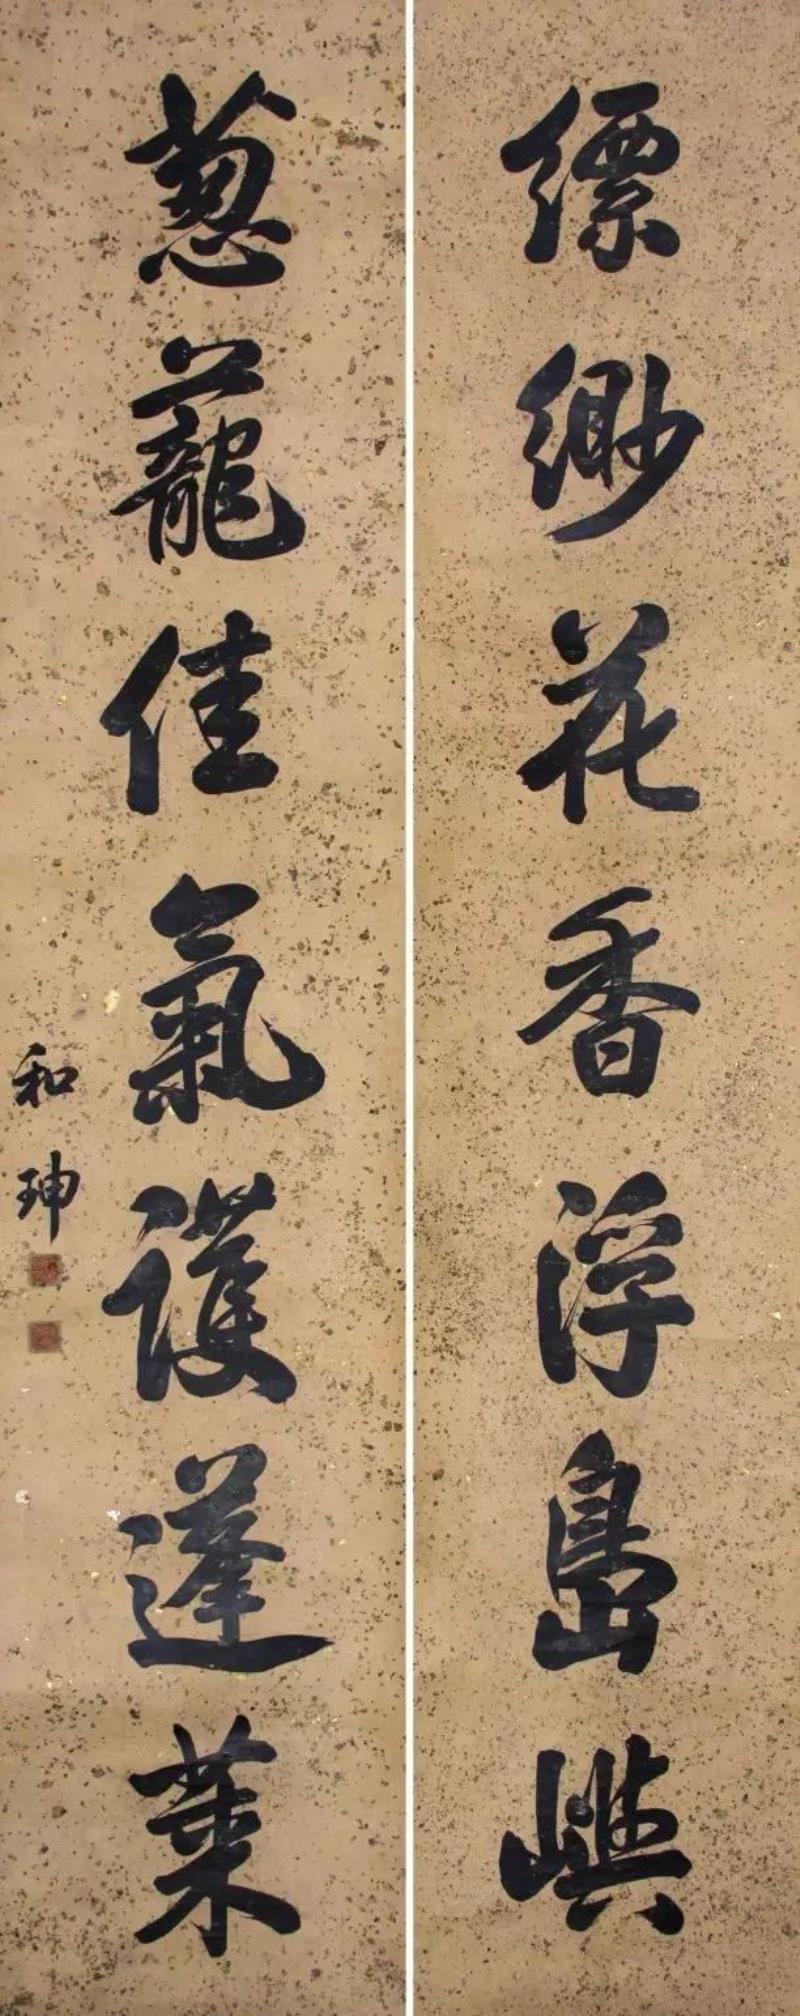 缥缈花香浮島嶼
葱蘢佳氣護蓬萊
和珅